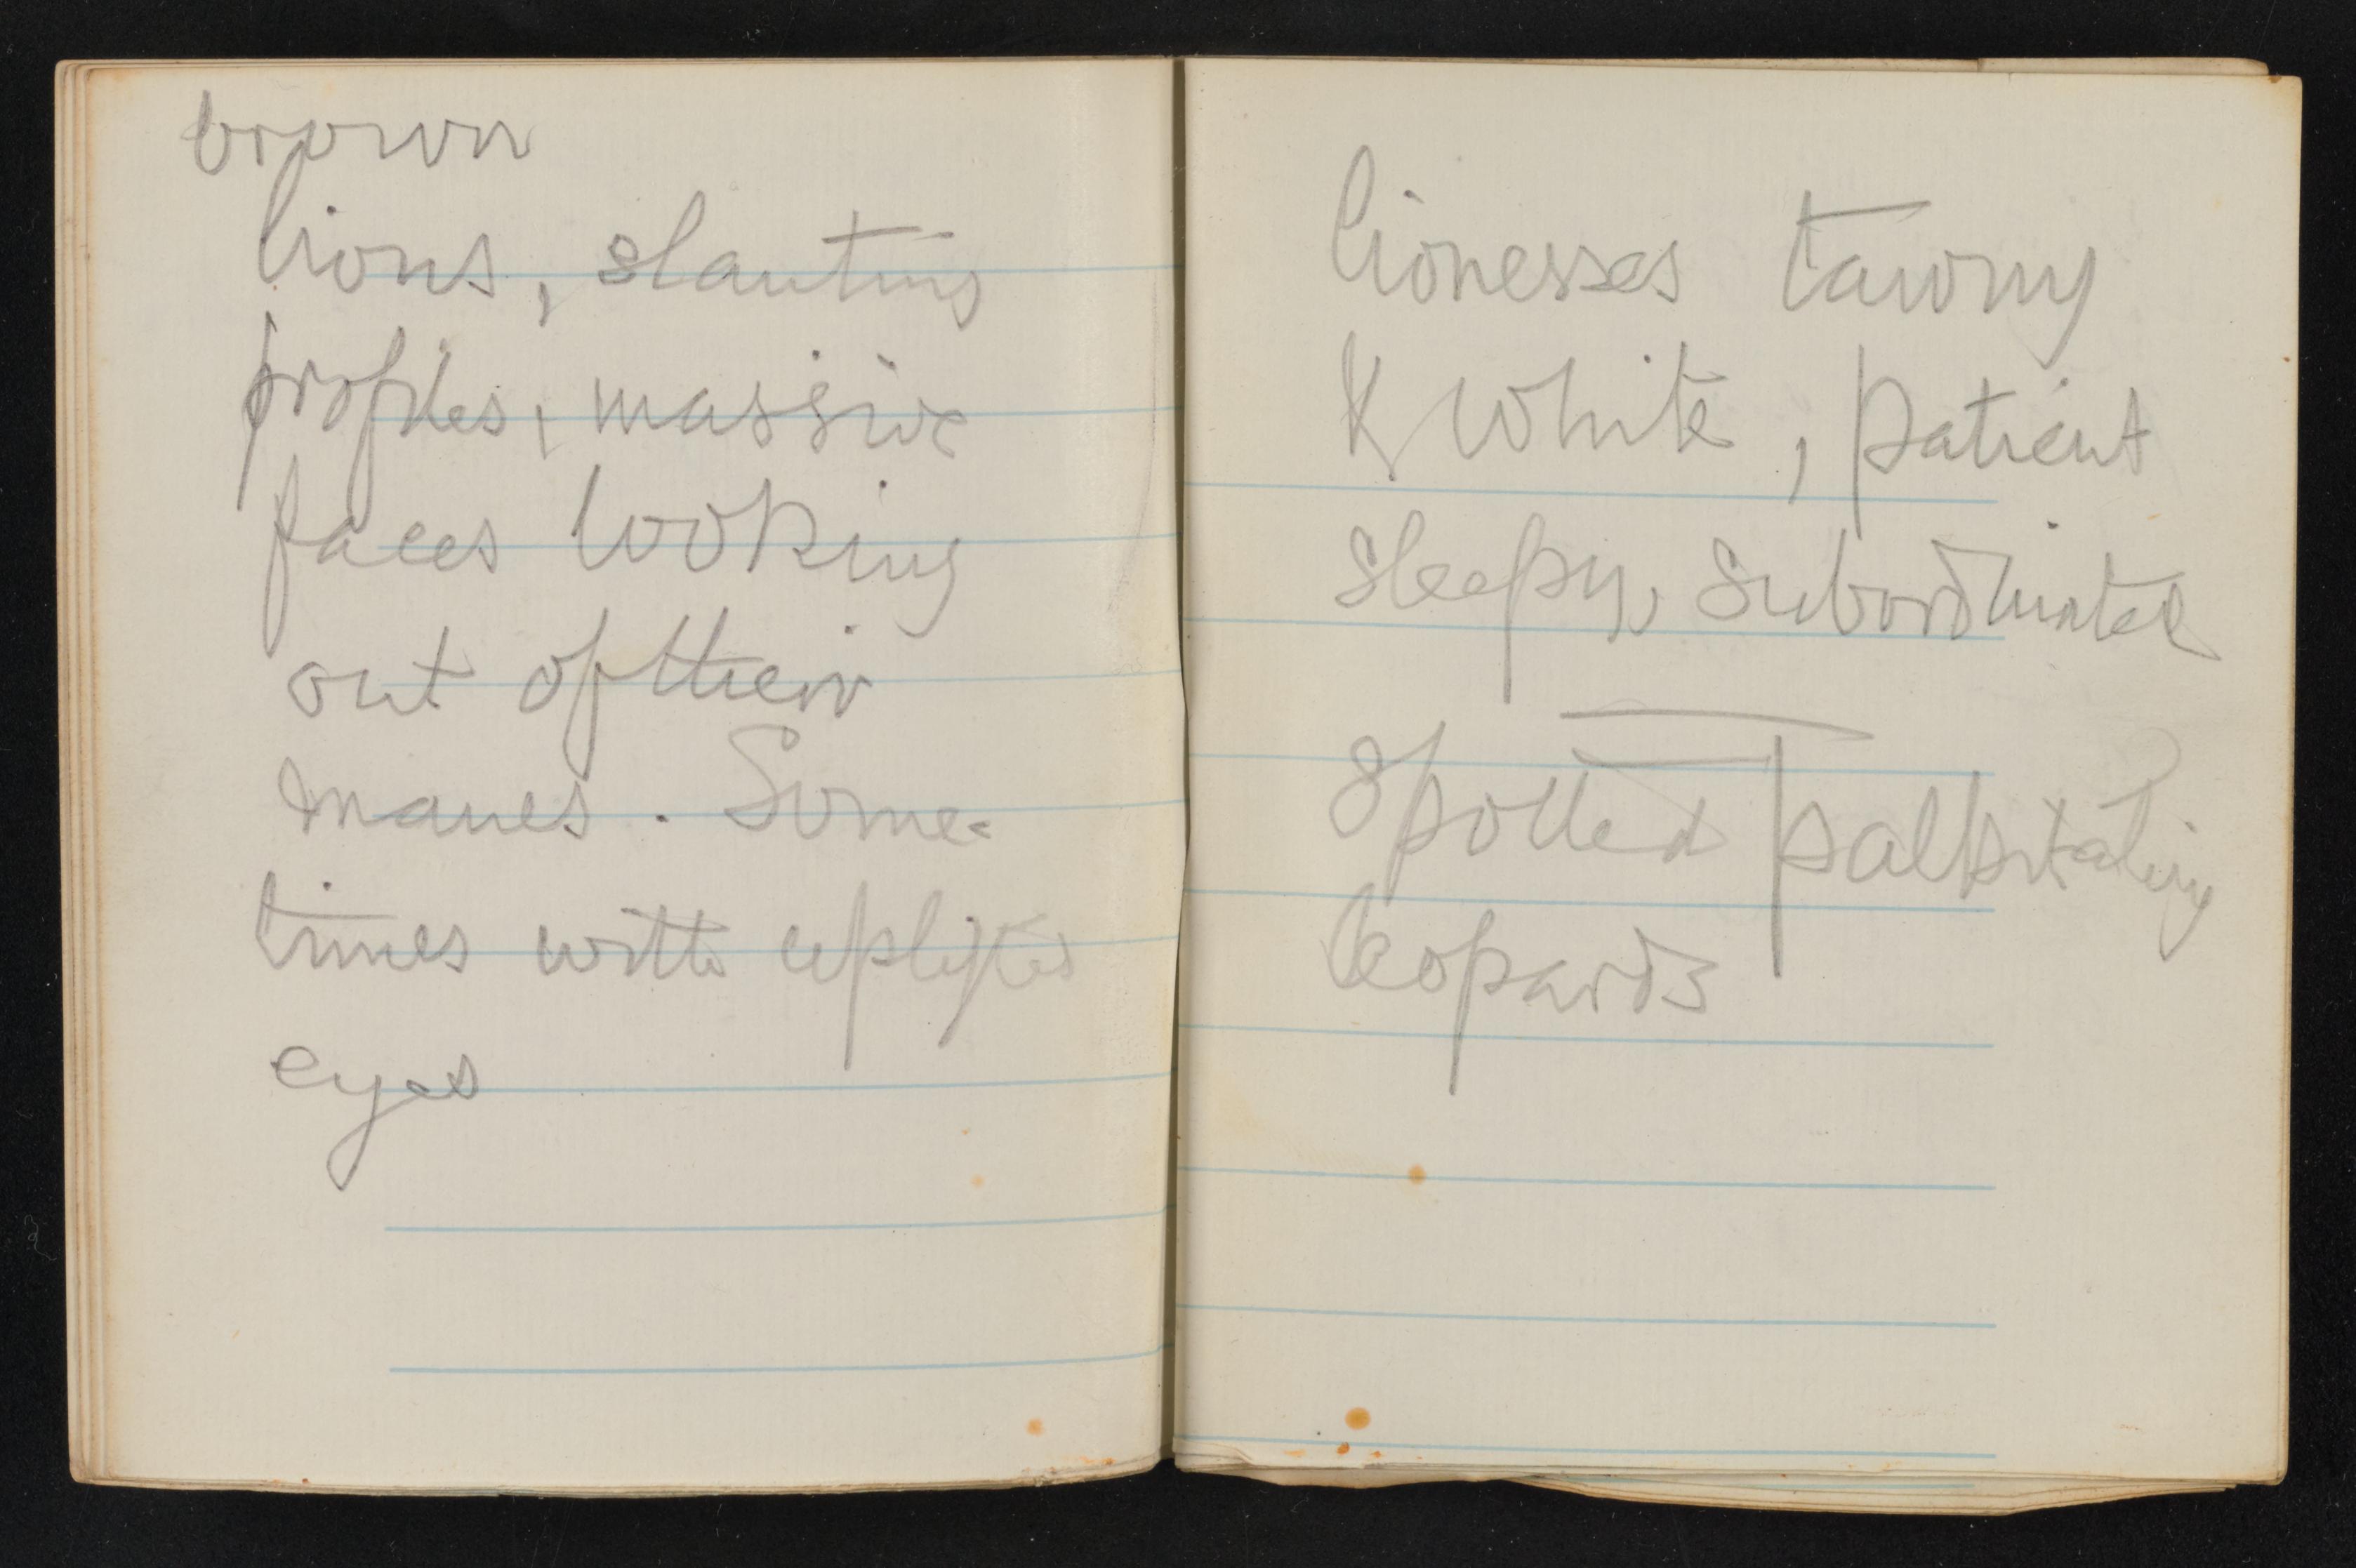 brown
lions, slanting
profiles, massive
faces looking
out of their
manes. Some-
times with uplifted
eyes
lionesses tawny
& white, patient
sleepy, subordinated
Spotted palpitating
leopards